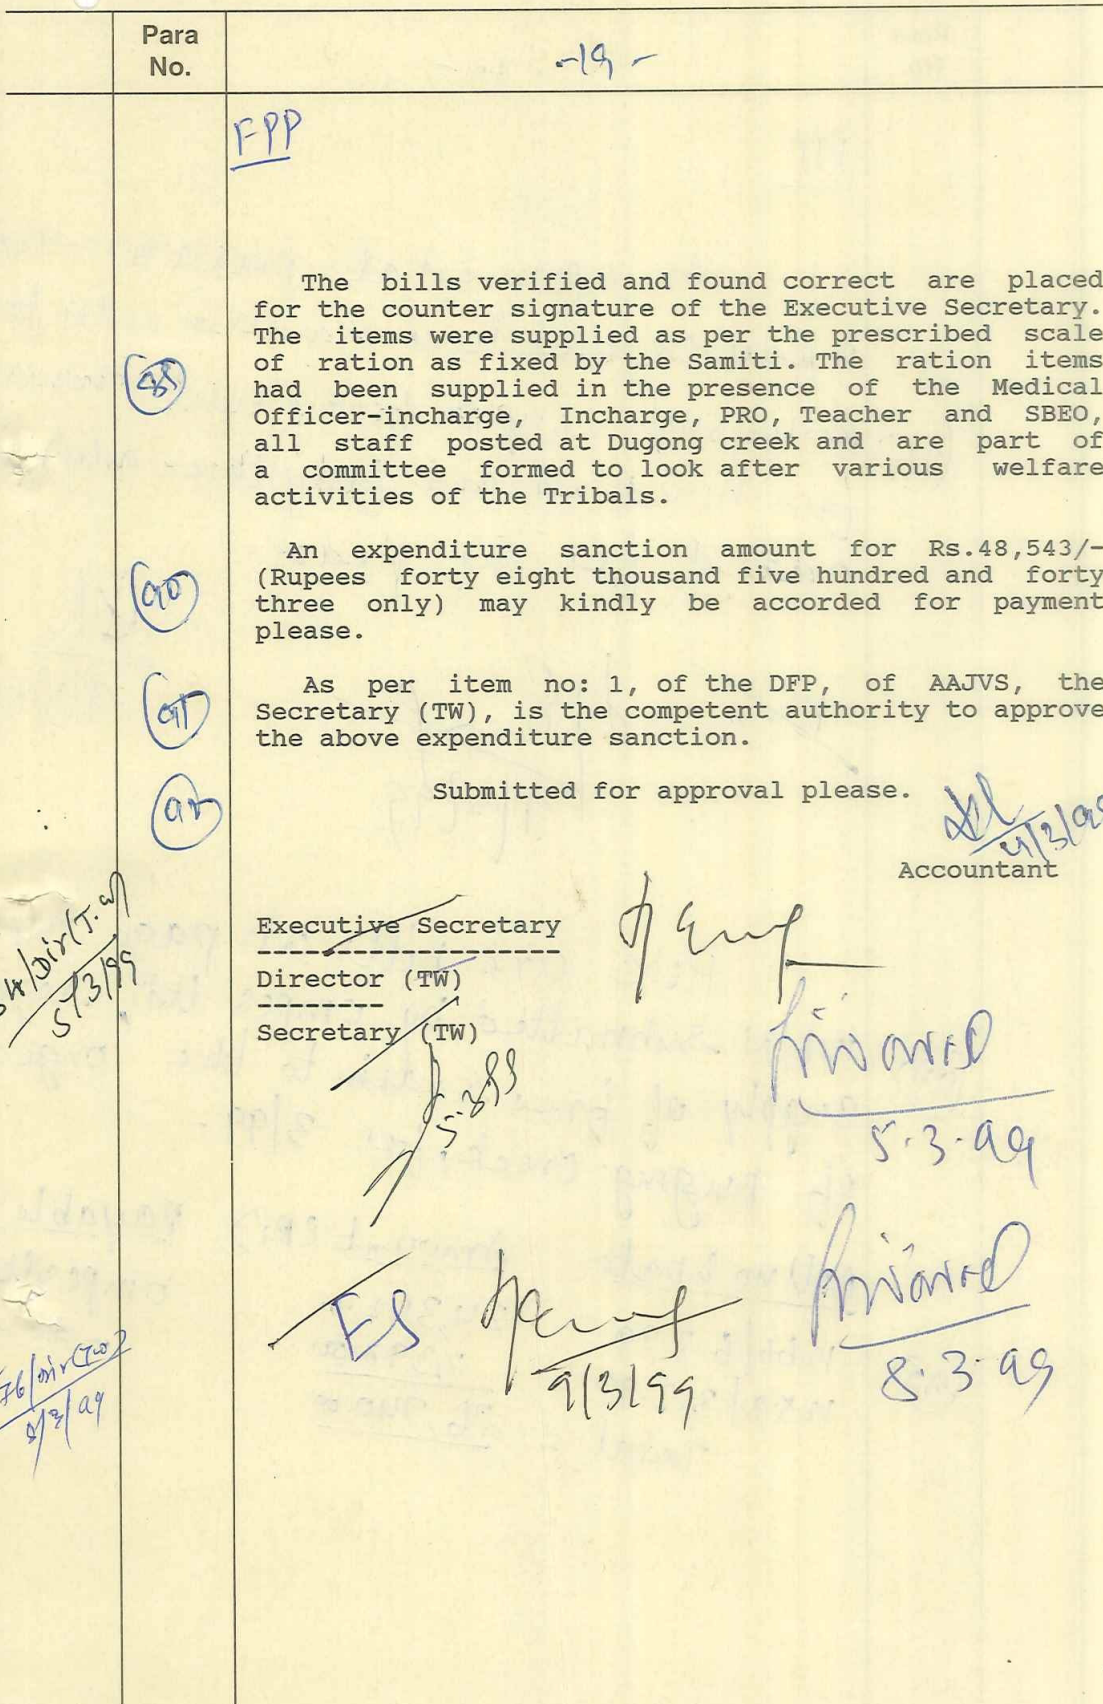 Para
No.
-19-
FPP
The bills verified and found correct are placed
for the counter signature of the Executive Secretary.
The items were supplied as per the prescribed scale
of ration as fixed by the Samiti. The ration items
had been supplied in the presence of the Medical
Officer-incharge, Incharge, PRO, Teacher and SBEO,
all staff posted at Dugong creek and are part of
a committee formed to look after various welfare
activities of the Tribals.
90
An expenditure sanction amount for Rs.48,543/-
(Rupees forty eight thousand five hundred and forty
three only) may kindly be accorded for payment
please.
91
As per item no: 1, of the DFP, of AAJVS, the
Secretary (TW), is the competent authority to approve
the above expenditure sanction.
92
Submitted for approval please.
Accountant
Executive Secretary
Director (TW)
Secretary (TW)
/Dir(T.W)
5/3/99
5.3.99
5.3.99
ES
9/3/99
8.3.99
/Dir(TW)
8/3/99